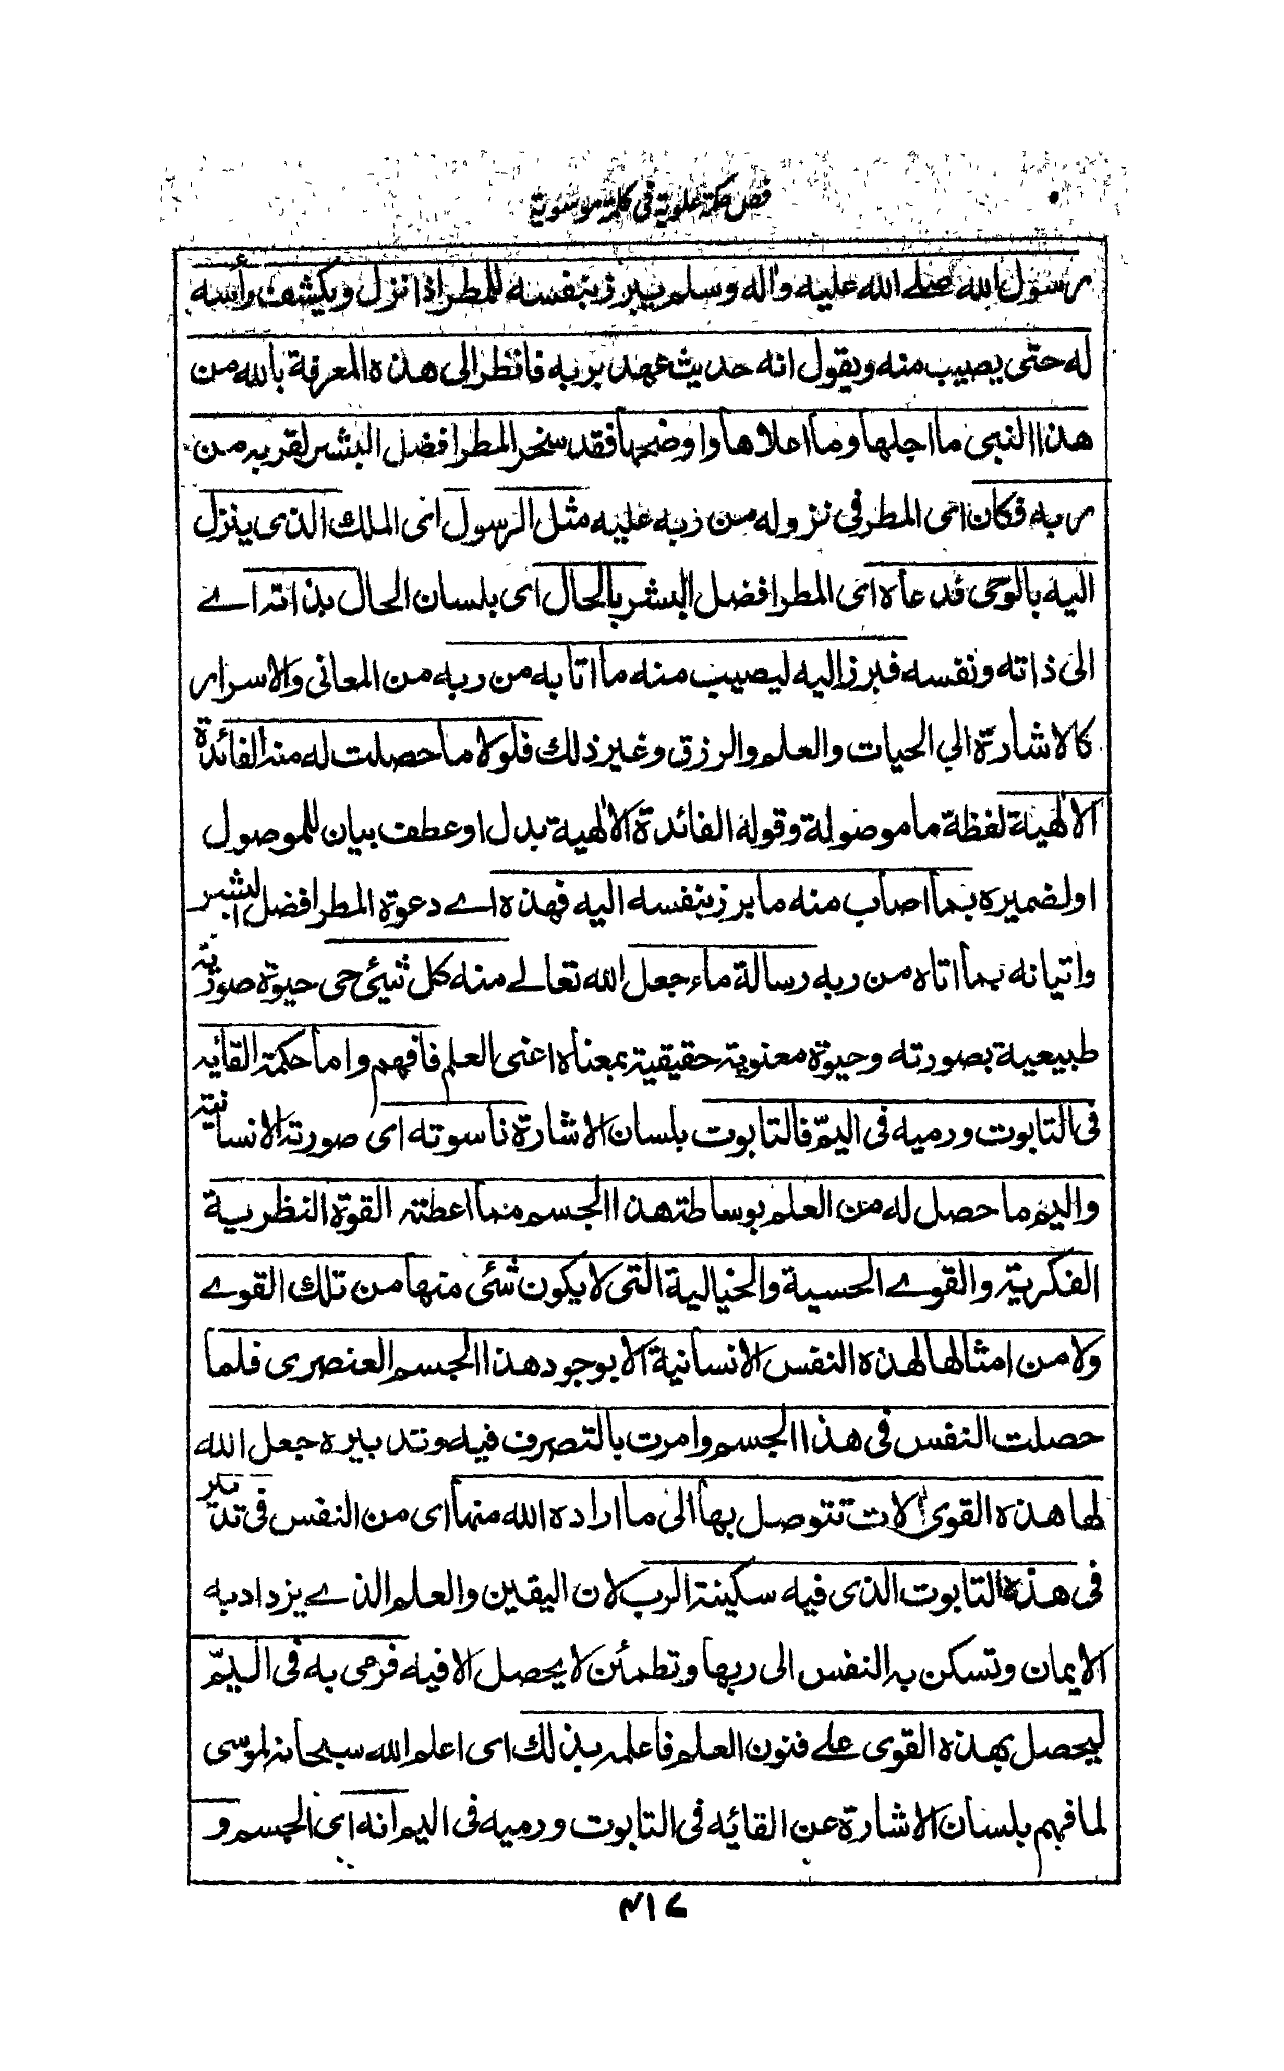 فص حكمة علوية في كلمة موسوية
رسول الله صلے الله عليه واله وسلم يبرز بنفسه للمطر اذا نزل ويكشف رأسه
له حتى يصيب منه ويقول انه حديث عهد بربه فانظر الى هذه المعرفة بالله من
هذا النبي ما اجلها وما اعلاها واوضحها فقد سخر المطر افضل البشر لقربه من
ربه فكان اى المطر في نزوله من ربه عليه مثل الرسول اى الملك الذى ينزل
اليه بالوحى فدعاه اى المطر افضل البشر بالحال اى بلسان الحال بذاته اے
الى ذاته ونفسه فبرز اليه ليصيب منه ما اتا به من ربه من المعانى والاسرار
كالاشارة الي الحيات والعلم والرزق وغير ذلك فلولا ما حصلت له منه الفائدة
الالٰهية لفظة ما موصولة وقوله الفائدة الالٰهية بدل او عطف بيان للموصول
او لضميره بما اصاب منه ما برز بنفسه اليه فهذه اے دعوة المطر افضل البشر
واتيانه بما اتاه من ربه رسالة ماء جعل الله تعالے منه كل شيئ حى حيوة صورية
طبيعية بصورته وحيوة معنوية حقيقية بمعناه اعنى العلم فافهم واما حكمة القائه
فى التابوت ورميه فى اليمّ فالتابوت بلسان الاشارة ناسوته اى صورته الانسانية
واليم ما حصل له من العلم بوساطة هذا الجسم مما اعطته القوة النظرية
الفكرية والقوے الحسية والخيالية التى لا يكون شئى منها من تلك القوے
ولا من امثالها لهذه النفس الانسانية الا بوجود هذا الجسم العنصرى فلما
حصلت النفس فى هذا الجسم وامرت بالتصرف فيه وتدبيره جعل الله
لها هذه القوى الات تتوصل بها الى ما اراده الله منها اى من النفس فى تدبير
فى هذه التابوت الذى فيه سكينة الرب لان اليقين والعلم الذے يزداد به
الايمان وتسكن به النفس الى ربها وتطمئن لا يحصل الا فيه فرمى به فى اليمّ
ليحصل بهذه القوى علے فنون العلم فاعلمه بذلك اى اعلم الله سبحانه لموسى
لما فهم بلسان الاشارة عن القائه فى التابوت ورميه فى اليم انه اى الجسم و
۴۱۷